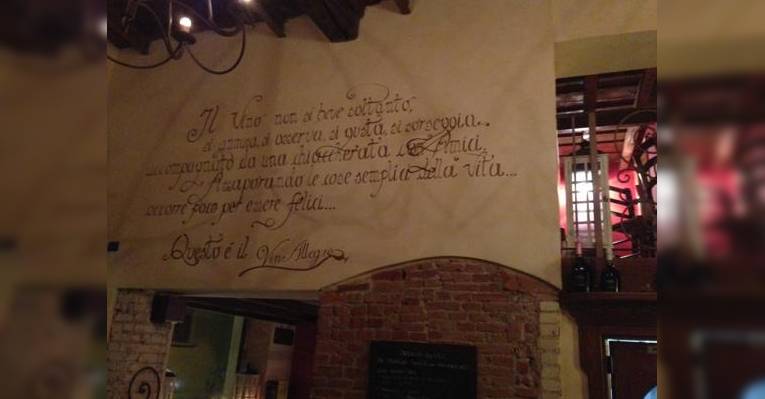 Il Vino non si beve soltanto,
si annusa, si osserva, si gusta, si sorseggia...
accompagnato da una chiaccherata con Amici.
Assaporando le cose semplici della vita...
occorre poco per essere felici...
Questo è il Vino Allegro